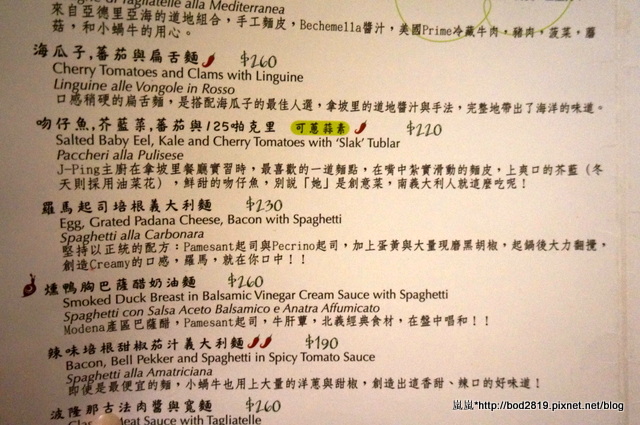 of Tagliatelle alla Mediterranea
來自亞德里亞海的道地組合，手工麵皮，Bechemella醬汁，美國Prime冷藏牛肉，豬肉，菠菜，蘑
菇，和小蝸牛的用心。
海瓜子，蕃茄與扁舌麵 $260
Cherry Tomatoes and Clams with Linguine
Linguine alle Vongole in Rosso
口感稍硬的扁舌麵，是搭配海瓜子的最佳人選，拿坡里的道地醬汁與手法，完整地帶出了海洋的味道。
吻仔魚，芥藍菜，蕃茄與125啪克里 可蔥蒜素 $220
Salted Baby Eel, Kale and Cherry Tomatoes with ‘Slak’ Tublar
Paccheri alla Pulisese
J-Ping主廚在拿坡里餐廳實習時，最喜歡的一道麵點，在嘴中紮實滑動的麵皮，上爽口的芥藍（冬
天則採用油菜花），鮮甜的吻仔魚，別說「她」是創意菜，南義大利人就這麼吃呢！
羅馬起司培根義大利麵 $230
Egg, Grated Padana Cheese, Bacon with Spaghetti
Spaghetti alla Carbonara
堅持以正統的配方：Pamesant起司與Pecrino起司，加上蛋黃與大量現磨黑胡椒，起鍋後大力翻攪，
創造Creamy的口感，羅馬，就在你口中！！
燻鴨胸巴薩醋奶油麵 $260
Smoked Duck Breast in Balsamic Vinegar Cream Sauce with Spaghetti
Spaghetti con Salsa Aceto Balsamico e Anatra Affumicato
Modena產區巴薩醋，Pamesant起司，牛肝蕈，北義經典食材，在盤中唱和！！
辣味培根甜椒茄汁義大利麵 $190
Bacon, Bell Pekker and Spaghetti in Spicy Tomato Sauce
Spaghetti alla Amatriciana
即便是最便宜的麵，小蝸牛也用上大量的洋蔥與甜椒，創造出這香甜、辣口的好味道！
波隆那古法肉醬與寬麵 $260
Meat Sauce with Tagliatelle
嵐嵐*http://bod2819.pixnet.net/blog